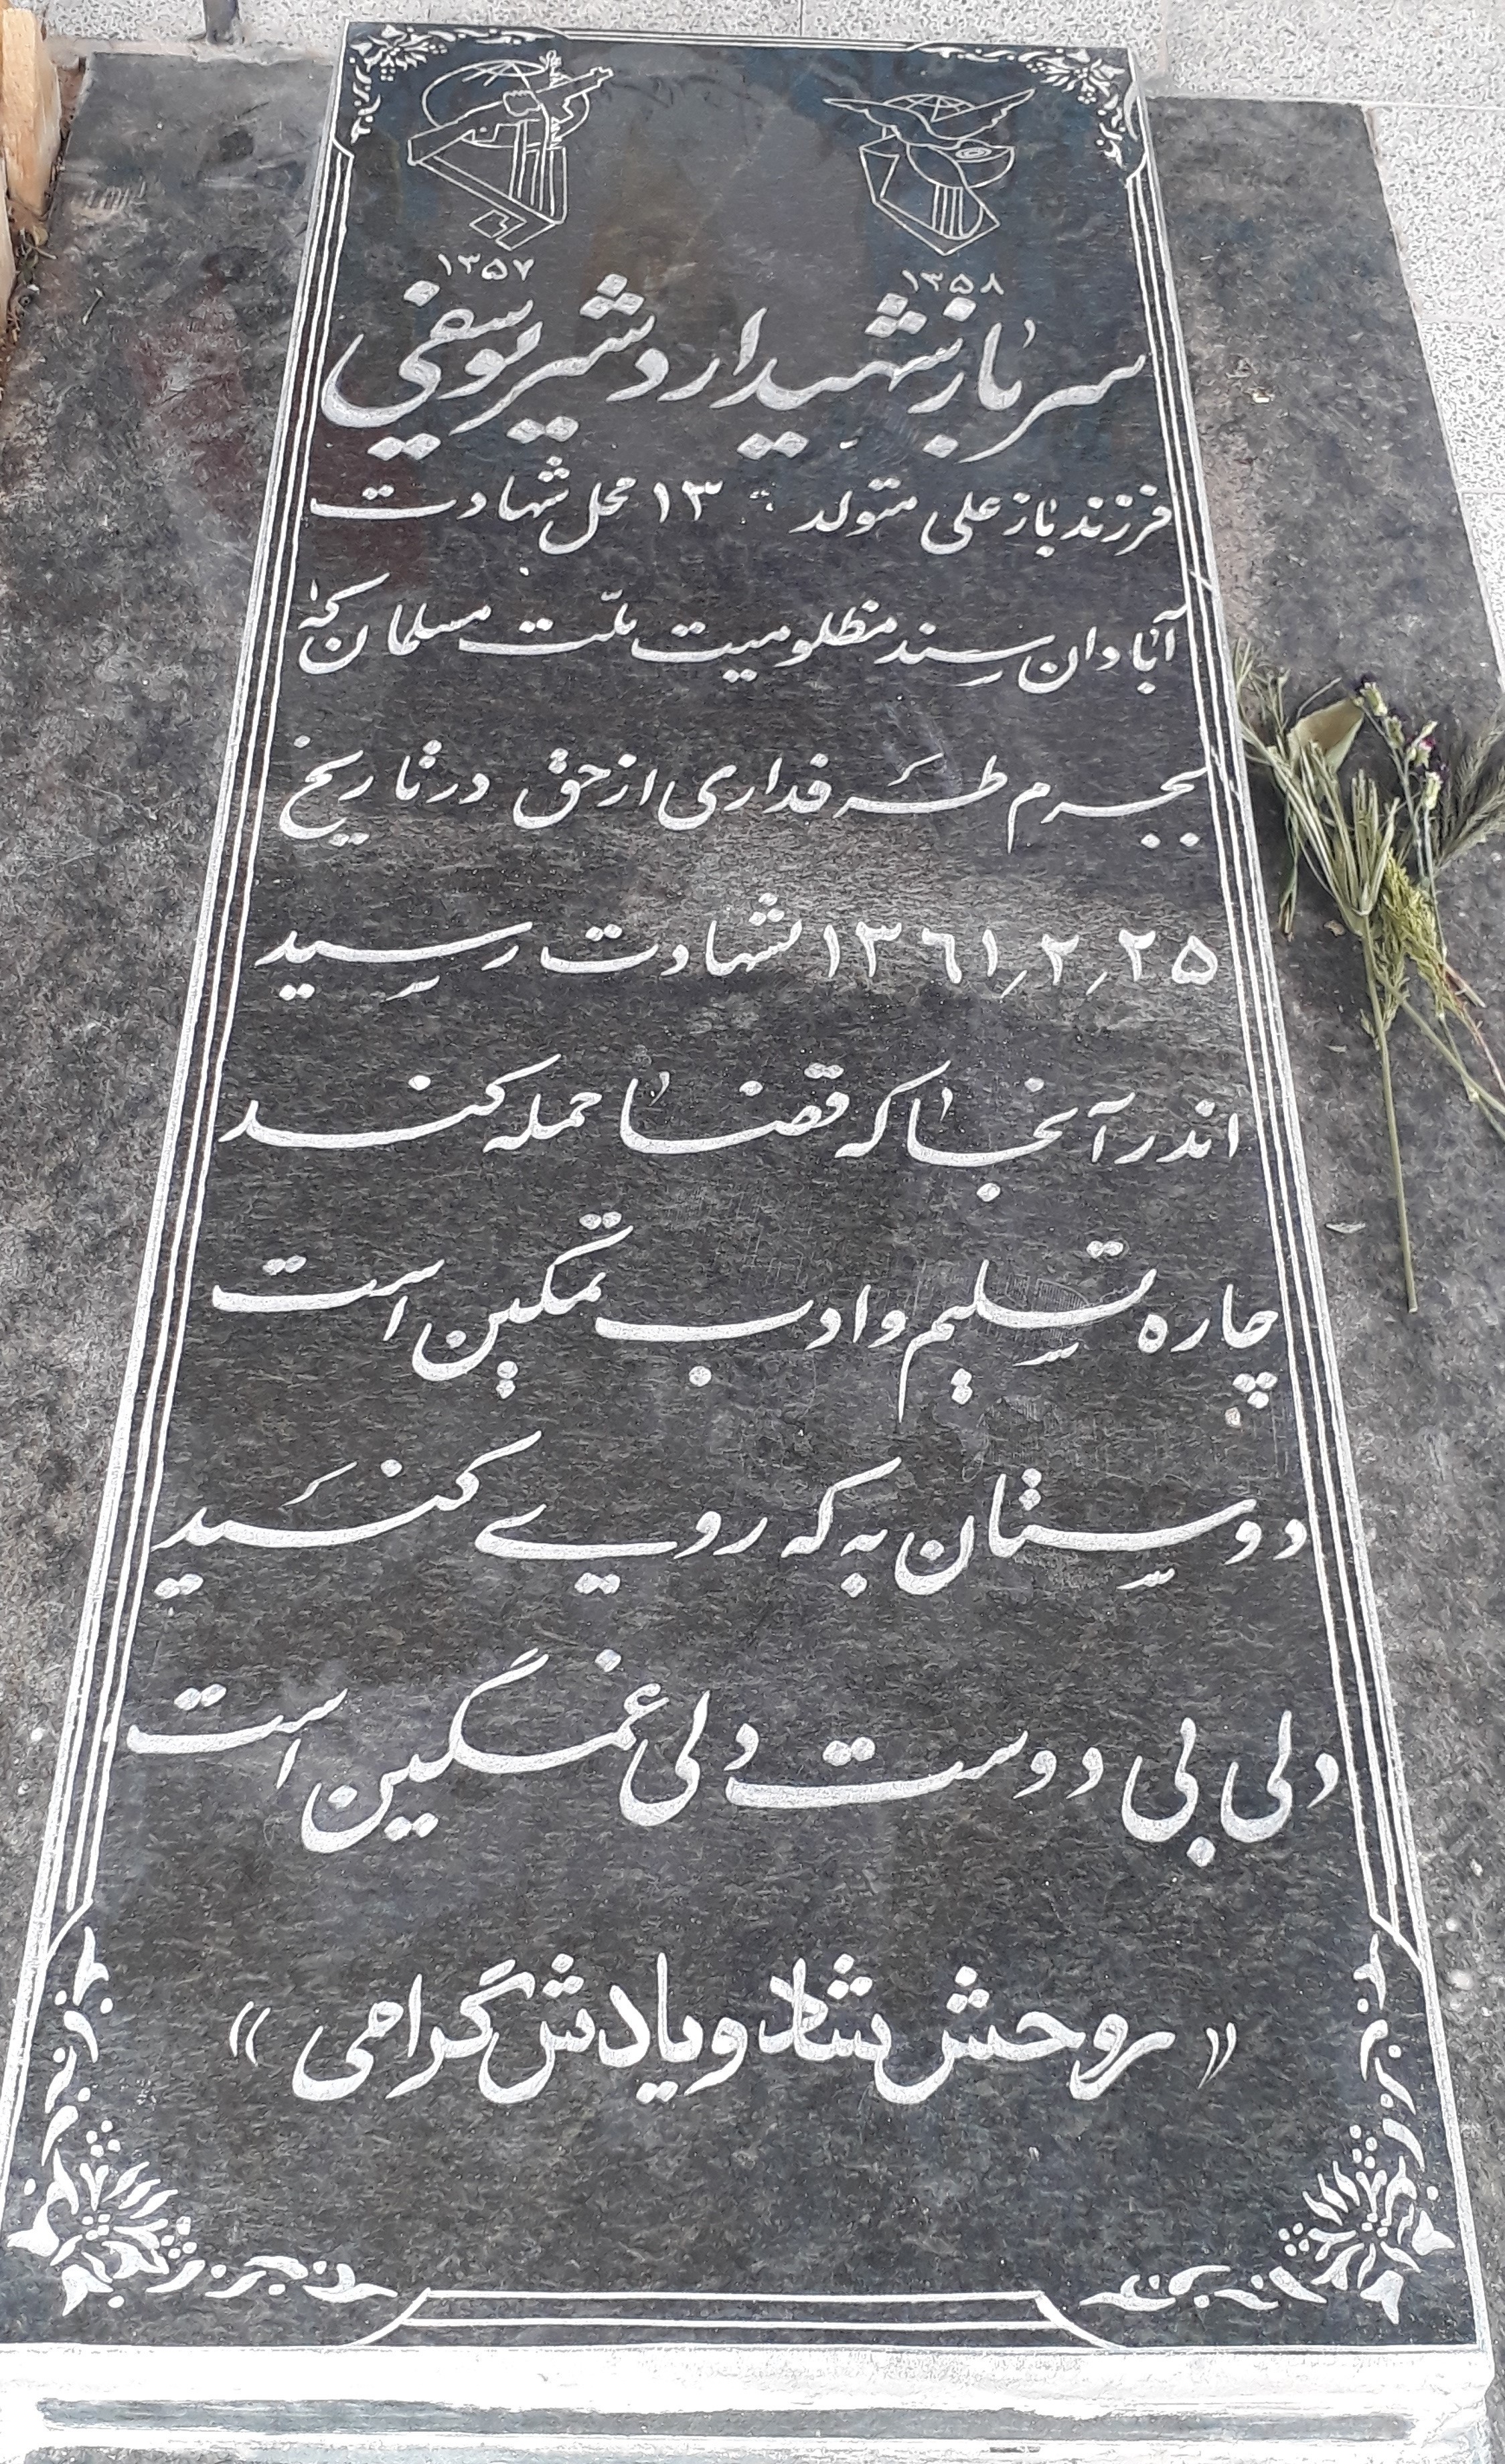 ۱۳۵۸ ۱۳۵۷
سرباز شهید اردشیر یوسفی
فرزند بازعلی متولد ۱۳ محل شهادت
آبادان سند مظلومیت ملّت مسلمان که
بجرم طرفداری از حق در تاریخ
۲۵٫۲٫۱۳۶۱ بشهادت رسید
اندر آنجا که قضا حمله کند
چاره تسلیم و ادب تمکین است
دوستان به که روی کنید
دلی بی دوست دلی غمگین است
«روحش شاد و یادش گرامی»